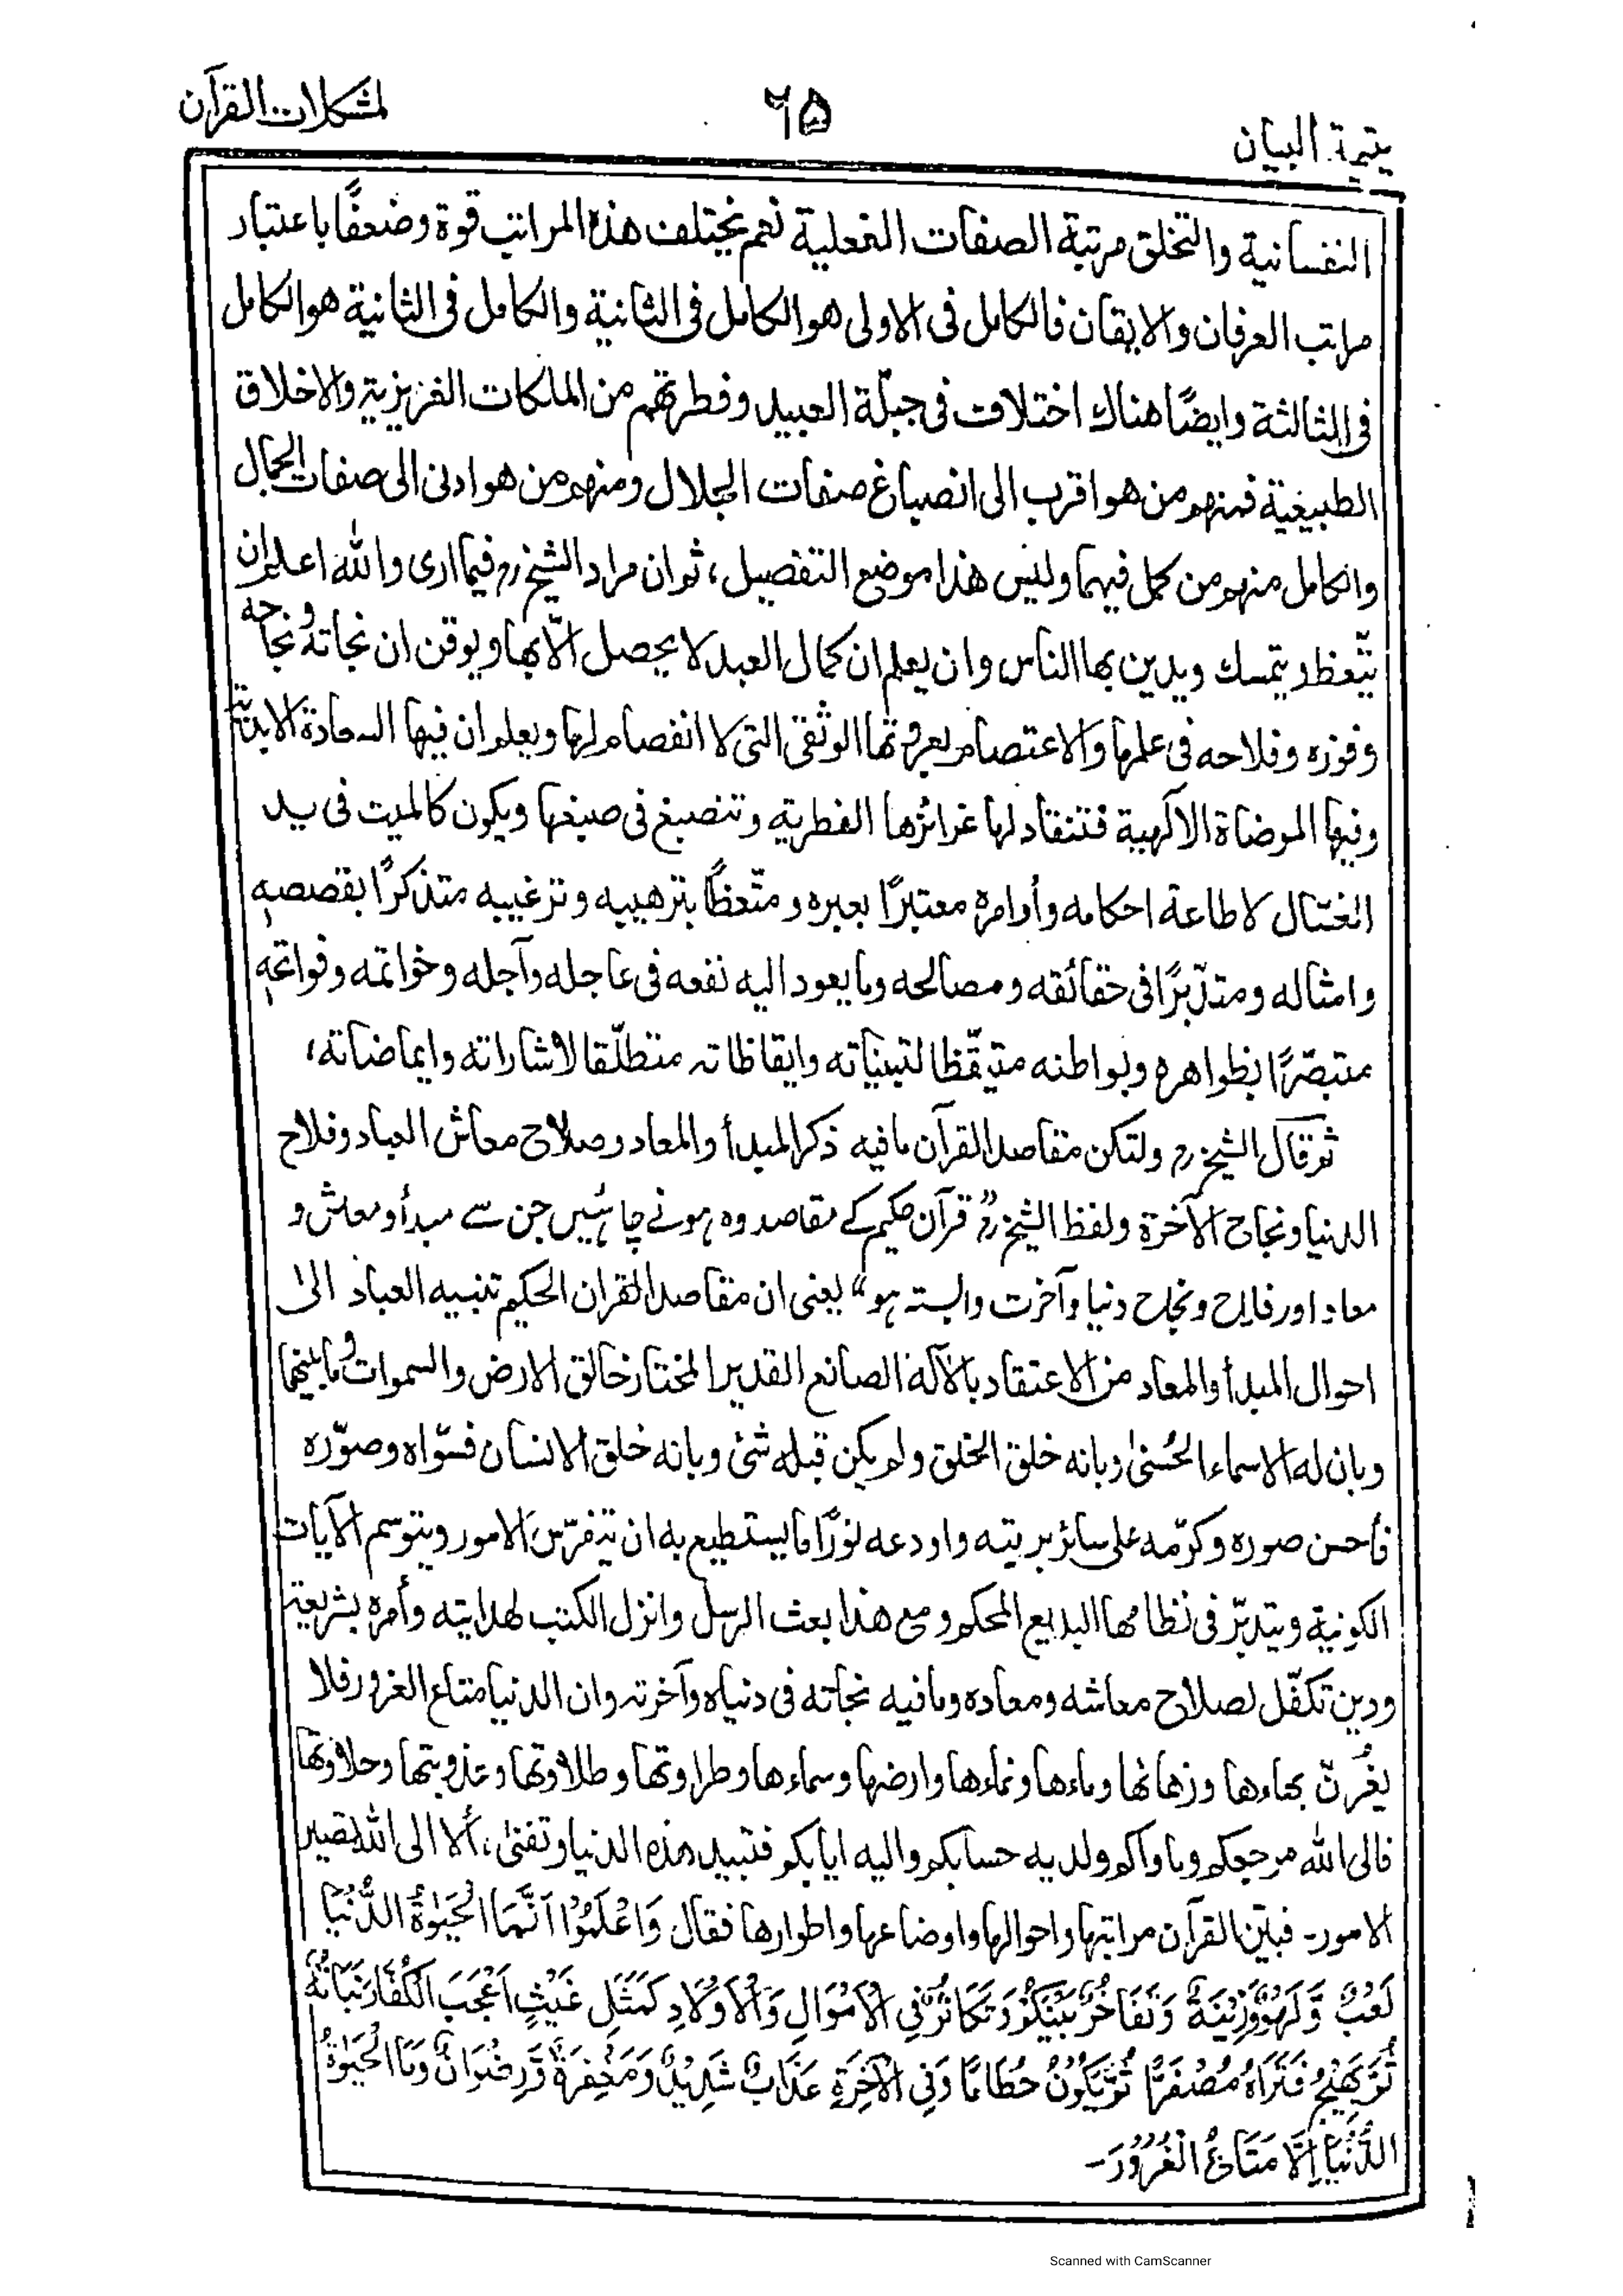 يتيمة البيان ٦٥ لمشكلات القرآن
النفسانية والتخلق مرتبة الصفات الفعلية نعم يختلف هذه المراتب قوة وضعفًا باعتبار
مراتب العرفان والايقان فالكامل فى الاولى هو الكامل فى الثانية والكامل فى الثانية هو الكامل
فى الثالثة وايضًا هناك اختلاف فى جبلّة العبيد وفطرتهم من الملكات الغريزية والاخلاق
الطبيعية فمنهم من هو اقرب الى انصباغ صفات الجلال ومنهم من هو ادنى الى صفات الجمال
والكامل منهم من كمل فيهما وليس هذا موضع التفصيل، ثم ان مراد الشيخ رح فيما ارى والله اعلم ان
يتّعظ ويتمسك ويدين بها الناس وان يعلم ان كمال العبد لا يحصل الّا بها ويوقن ان نجاته ونجاحه
وفوزه وفلاحه فى علمها والاعتصام بعروتها الوثقى التى لا انفصام لها ويعلم ان فيها السعادة الابديّة
وفيها المرضاة الالٰهية فتنقاد لها غرائزها الفطرية وتنصبغ فى صبغها ويكون كالميت فى يد
الغسّال لاطاعة احكامه وأوامره معتبرًا بعبره ومتّعظًا بترهيبه وترغيبه متذكرًا بقصصه
وامثاله ومتدبّرًا فى حقائقه ومصالحه وما يعود اليه نفعه فى عاجله وآجله وخواتمه وفواتحه
متبصّرًا بظواهره وبواطنه متيقّظا لتبيناته وايقاظاته متطلّقا لاشاراته وايماضاته،
ثم قال الشيخ رح ولتكن مقاصد القرآن مافيه ذكر المبدأ والمعاد وصلاح معاش العباد وفلاح
الدنيا ونجاح الآخرة ولفظ الشيخ رح "قرآن حکیم کے مقاصد وہ ہونے چاہئیں جن سے مبدأ ومعاش و
معاد اور فلاح ونجاح دنیا وآخرت وابستہ ہو" يعنى ان مقاصد القران الحكيم تنبيه العباد الى
احوال المبدأ والمعاد من الاعتقاد بالآله الصانع القدير المختار خالق الارض والسموات وما بينهما
وبان له الاسماء الحُسنىٰ وبانه خلق الخلق ولم يكن قبله شئ وبانه خلق الانسان فسوّاه وصوّره
فأحسن صوره وكرّمه على سائر بريته واودعه نورًا ما يستطيع به ان يتفرّس الامور ويتوسم الآيات
الكونية ويتدبّر فى نظامها البديع المحكم ومع هذا بعث الرسل وانزل الكتب لهدايته وأمره بشريعة
ودين تكفّل لصلاح معاشه ومعاده وما فيه نجاته فى دنياه وآخرته وان الدنيا متاع الغرور فلا
يغُرنّ بهاءها وزهائها وماءها ونماءها وارضها وسماءها وطراوتها وطلاوتها وعذوبتها وحلاوتها
فالى الله مرجعكم وماواكم ولديه حسابكم واليه ايابكم فتبيد هذه الدنيا وتفنىٰ، ألا الى الله تصير
الامور۔ فبيّن القرآن مراتبها واحوالها واوضاعها واطوارها فقال وَاعْلَمُوْا اَنَّمَا الْحَيٰوةُ الدُّنْيَا
لَعِبٌ وَّلَهْوٌ وَّزِيْنَةٌ وَّتَفَاخُرٌۢ بَيْنَكُمْ وَتَكَاثُرٌ فِى الْاَمْوَالِ وَالْاَوْلَادِ كَمَثَلِ غَيْثٍ اَعْجَبَ الْكُفَّارَ نَبَاتُهٗ
ثُمَّ يَهِيْجُ فَتَرَاهُ مُصْفَرًّا ثُمَّ يَكُوْنُ حُطَامًا وَفِى الْاٰخِرَةِ عَذَابٌ شَدِيْدٌ وَّمَغْفِرَةٌ وَّرِضْوَانٌ وَمَا الْحَيٰوةُ
الدُّنْيَا اِلَّا مَتَاعُ الْغُرُوْرِ۔
Scanned with CamScanner